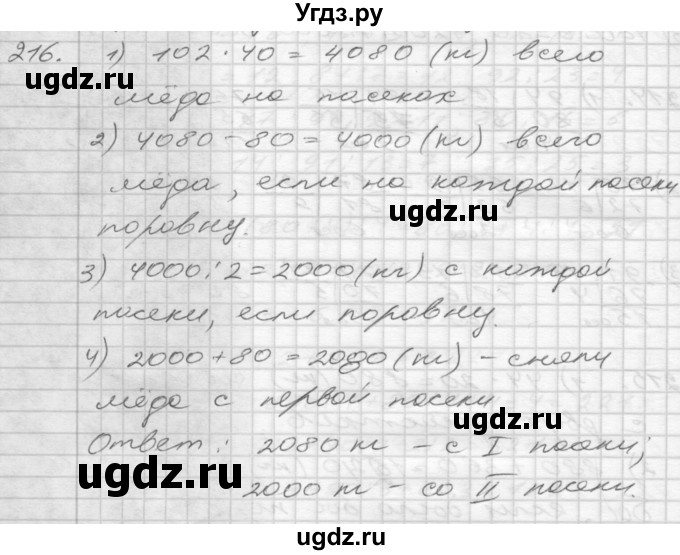 Угдз.ру
216. 1) 102 · 40 = 4080 (кг) всего
мёда на пасеках
2) 4080 - 80 = 4000 (кг) всего
мёда, если на каждой пасеки
поровну.
gdz.ru
3) 4000 : 2 = 2000 (кг) с каждой
пасеки, если поровну.
4) 2000 + 80 = 2080 (кг) - сняли
мёда с первой пасеки
gdz.ru
Ответ: 2080 кг - с I пасеки;
ugdz.ru
2000 кг - со II пасеки.
gdz.ru